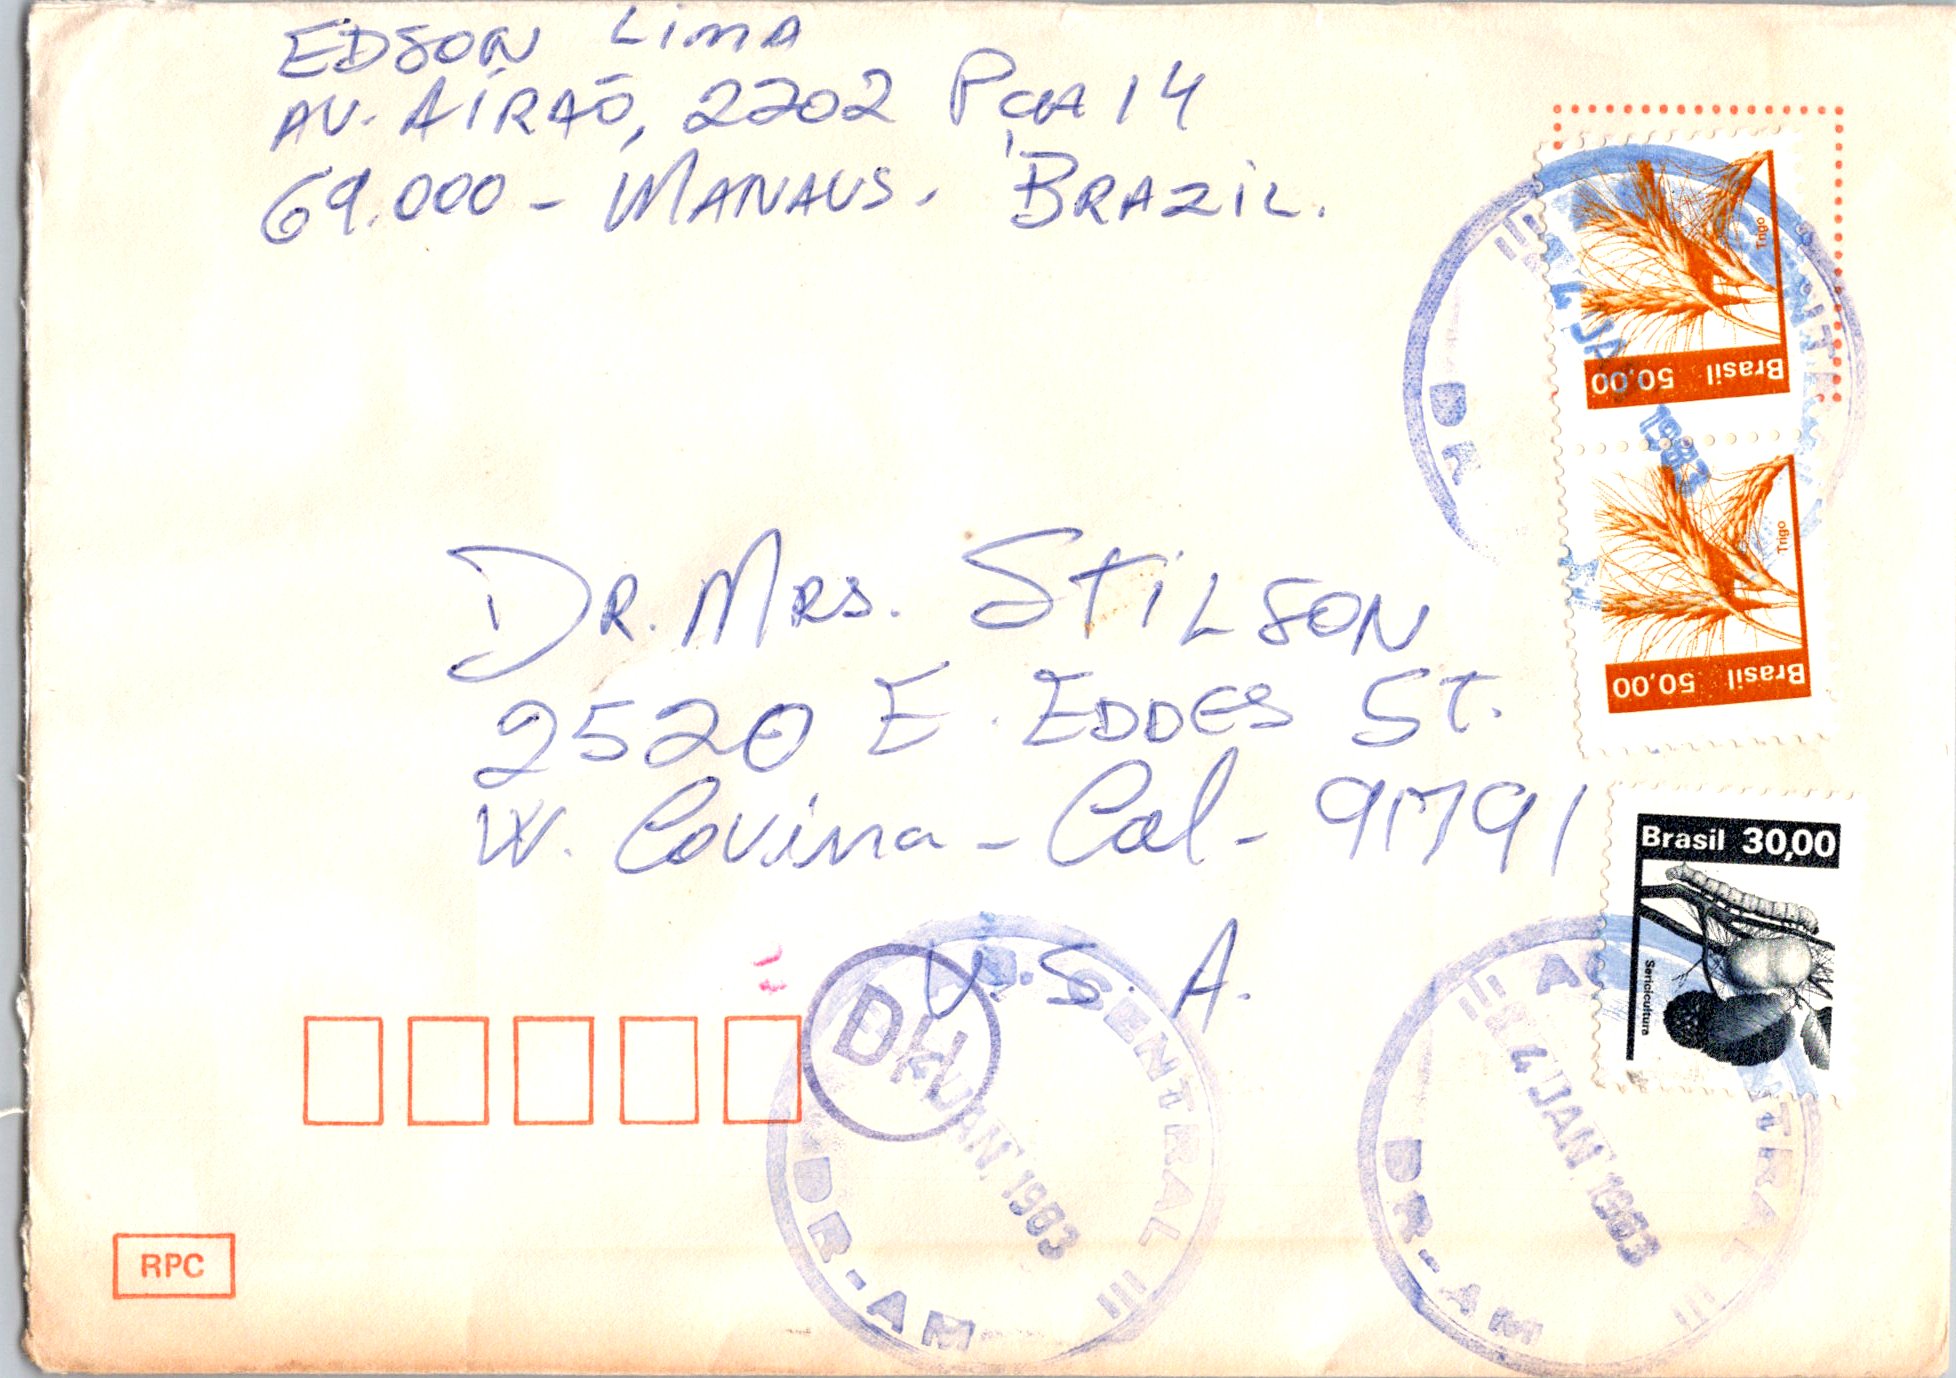 EDSON LIMA
AV. AIRÃO, 2202 PÇA 14
69.000 - MANAUS. BRAZIL.
Trigo
Brasil 50,00
4 JAN 1983
DR
Trigo
Brasil 50,00
DR. MRS. STILSON
2520 E. EDDES ST.
W. Covina - Cal - 91791
U.S.A.
Brasil 30,00
Sericicultura
DH
AG. CENTRAL
JAN 1983
DR-AM
4 JAN 1983
DR-AM
RPC